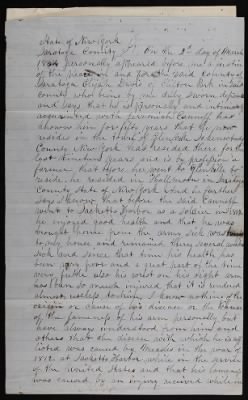 State of New York
Saratoga County On the 3rd day of March
personally appeared before me a justice
of the peace in and for the said County of
Saratoga Elijah of Clifton Park in said
County who being by me duly sworn deposes
and says that he is personally and intimately
acquainted with Jeremiah and
has known him fifty years that he now
resides in the Town of Glenville Schenectady
County New York has resided there for the
last nineteen years and is by profession a
farmer that before he went to Glenville to
reside, he resided in Saratoga
County State of New York And he further
says I know that before the said
went to Sacketts Harbor as a soldier in 1812
he enjoyed good health and that he was
brought home from the army sick was taken
to my house and remained there several weeks
sick and since that time his health has
been very poor and a great part of the time
very feeble also his wrist on his right arm
has been so much injured that it is rendered
almost useless touching I know nothing of the
origin or cause of his disease or the cause
of the lameness of his arm personally but
have always understood from him and
others that the disease with which he is af-
flicted was caused by Measles in the year of
1812 at Sacketts Harbor while in the service
of the United States and that his lameness
was caused by an injury received while in